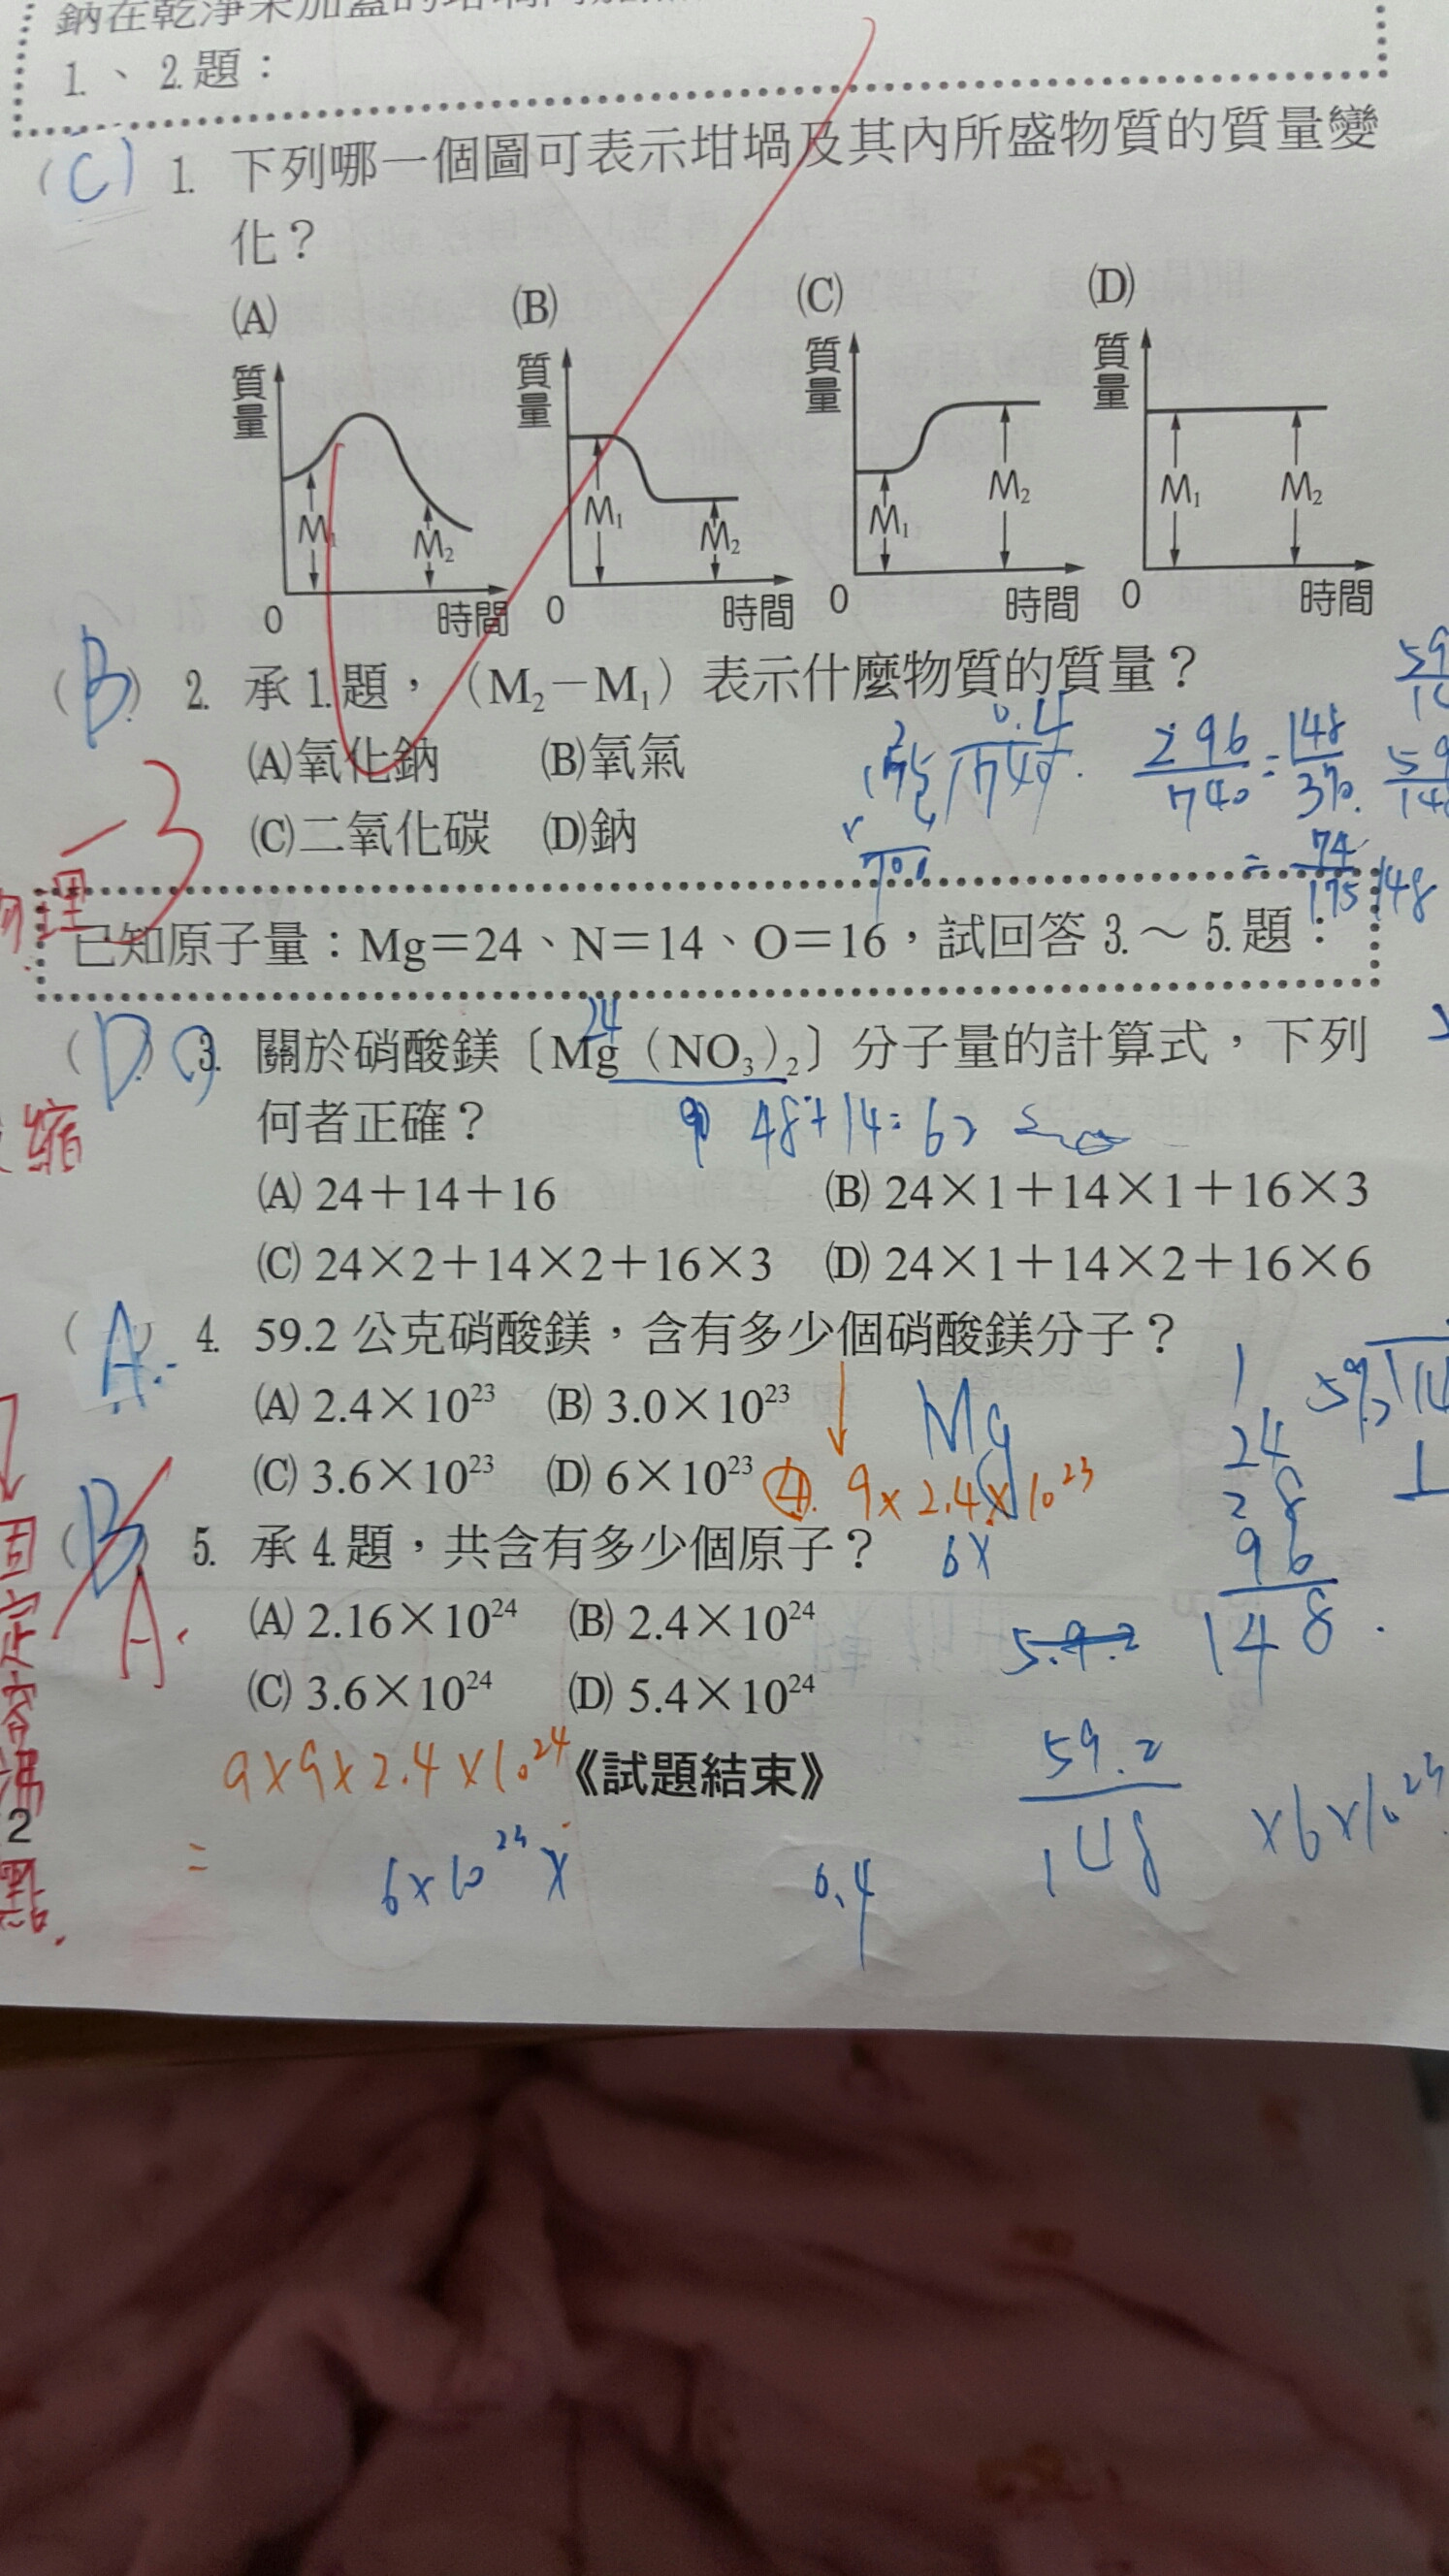 鈉在乾淨未加蓋的坩堝內加
1.、2.題：
(C) 1. 下列哪一個圖可表示坩堝及其內所盛物質的質量變
化？
(A) (B) (C) (D)
質量 質量 質量 質量
M₁ M₂ M₁ M₂ M₁ M₂ M₁ M₂
0 時間 0 時間 0 時間 0 時間
(B) 2. 承1.題，（M₂－M₁）表示什麼物質的質量？
(A)氧化鈉 (B)氧氣
0.4
296/740=148/370
(C)二氧化碳 (D)鈉
=74/175
148
-3
物理
已知原子量：Mg＝24、N＝14、O＝16，試回答3.～5.題：
24
(D) 3. 關於硝酸鎂〔Mg（NO₃）₂〕分子量的計算式，下列
何者正確？
48+14=62
縮
(A) 24＋14＋16 (B) 24×1＋14×1＋16×3
(C) 24×2＋14×2＋16×3 (D) 24×1＋14×2＋16×6
(A) 4. 59.2公克硝酸鎂，含有多少個硝酸鎂分子？
(A) 2.4×10²³ (B) 3.0×10²³
Mg
(C) 3.6×10²³ (D) 6×10²³
④. 9×2.4×10²³
1
24
28
96
148
(B) A. 5. 承4.題，共含有多少個原子？
6X
(A) 2.16×10²⁴ (B) 2.4×10²⁴
5.9.2
(C) 3.6×10²⁴ (D) 5.4×10²⁴
固定容沸2點.
9×9×2.4×10²⁴
《試題結束》
59.2/148 ×6×10²³
=
6×10²³×
0.4